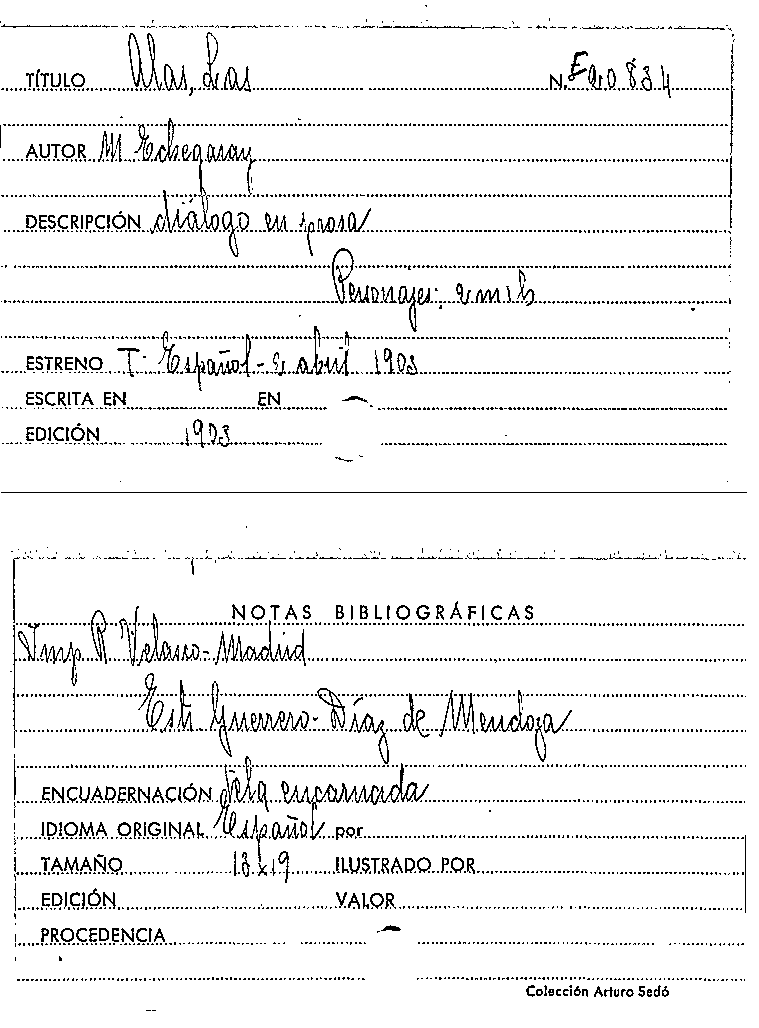 TÍTULO Alas, Las N. Ego 834
AUTOR M Echegaray
DESCRIPCIÓN diálogo en prosa
Personajes: 2 m 1 h
ESTRENO T. Español - 2 abril 1903
ESCRITA EN EN
EDICIÓN 1903
NOTAS BIBLIOGRÁFICAS
Imp R Velasco - Madrid
Estr Guerrero - Díaz de Mendoza
ENCUADERNACIÓN tela encarnada
IDIOMA ORIGINAL Español por
TAMAÑO 13 x 19 ILUSTRADO POR
EDICIÓN VALOR
PROCEDENCIA
Colección Arturo Sedó